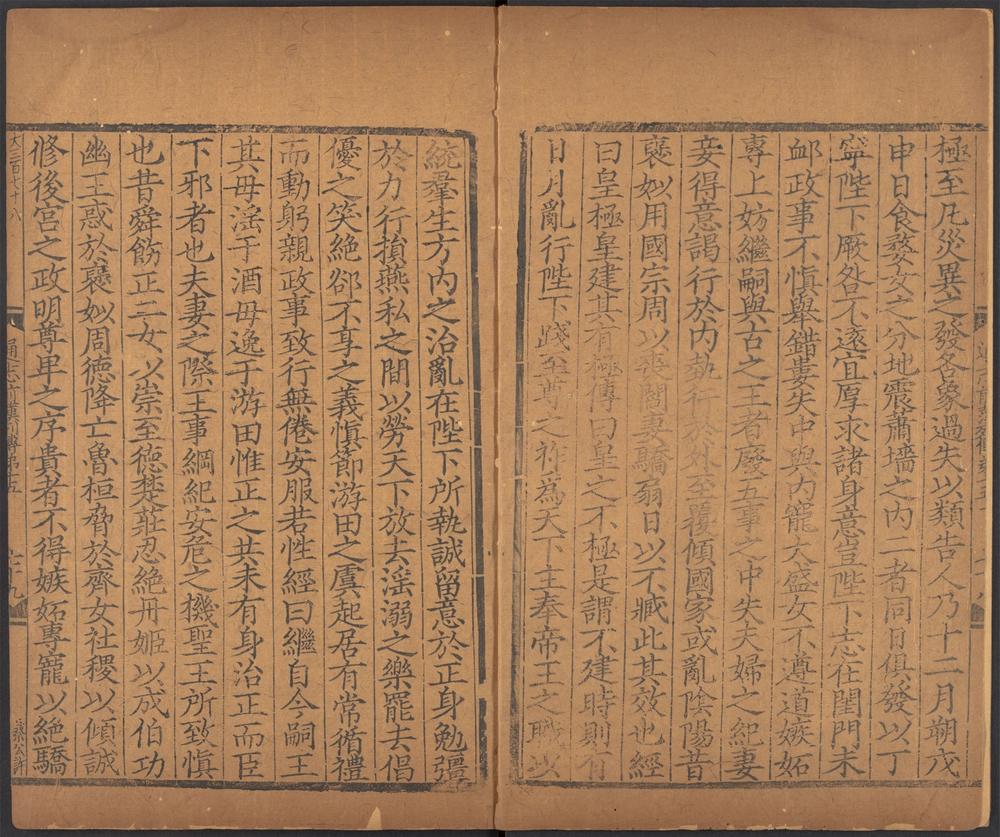 極至凡災異之發各象過失以類告人乃十二月朔戊
申日食婺女之分地震蕭墻之內二者同日俱發以丁
寧陛下厥咎不遠宜厚求諸身意豈陛下志在閨門未
䘏政事不慎舉錯婁失中與內寵大盛女不遵道嫉妬
專上妨繼嗣與古之王者廢五事之中失夫婦之紀妻
妾得意謁行於內埶行於外至覆傾國家或亂陰陽昔
褒姒用國宗周以喪閻妻驕扇日以不臧此其效也經
曰皇極皇建其有極傳曰皇之不極是謂不建時則有
日月亂行陛下踐至尊之祚為天下主奉帝王之職以
統羣生方內之治亂在陛下所執誠留意於正身勉彊
於力行損燕私之間以勞天下放去滛溺之樂罷去倡
優之笑絶郤不享之義慎節游田之虞起居有常循禮
而動躬親政事致行無倦安服若性經曰繼自今嗣王
其毋滛于酒毋逸于游田惟正之共未有身治正而臣
下邪者也夫妻之際王事綱紀安危之機聖王所致慎
也昔舜飭正二女以崇至德楚莊忍絶丹姬以成伯功
幽王惑於褒姒周德降亡魯桓脅於齊女社稷以傾誠
修後宮之政明尊卑之序貴者不得嫉妬專寵以絶驕
大三百六十八
通志前漢列傳第五
十九